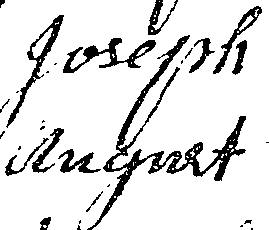 Joseph
August